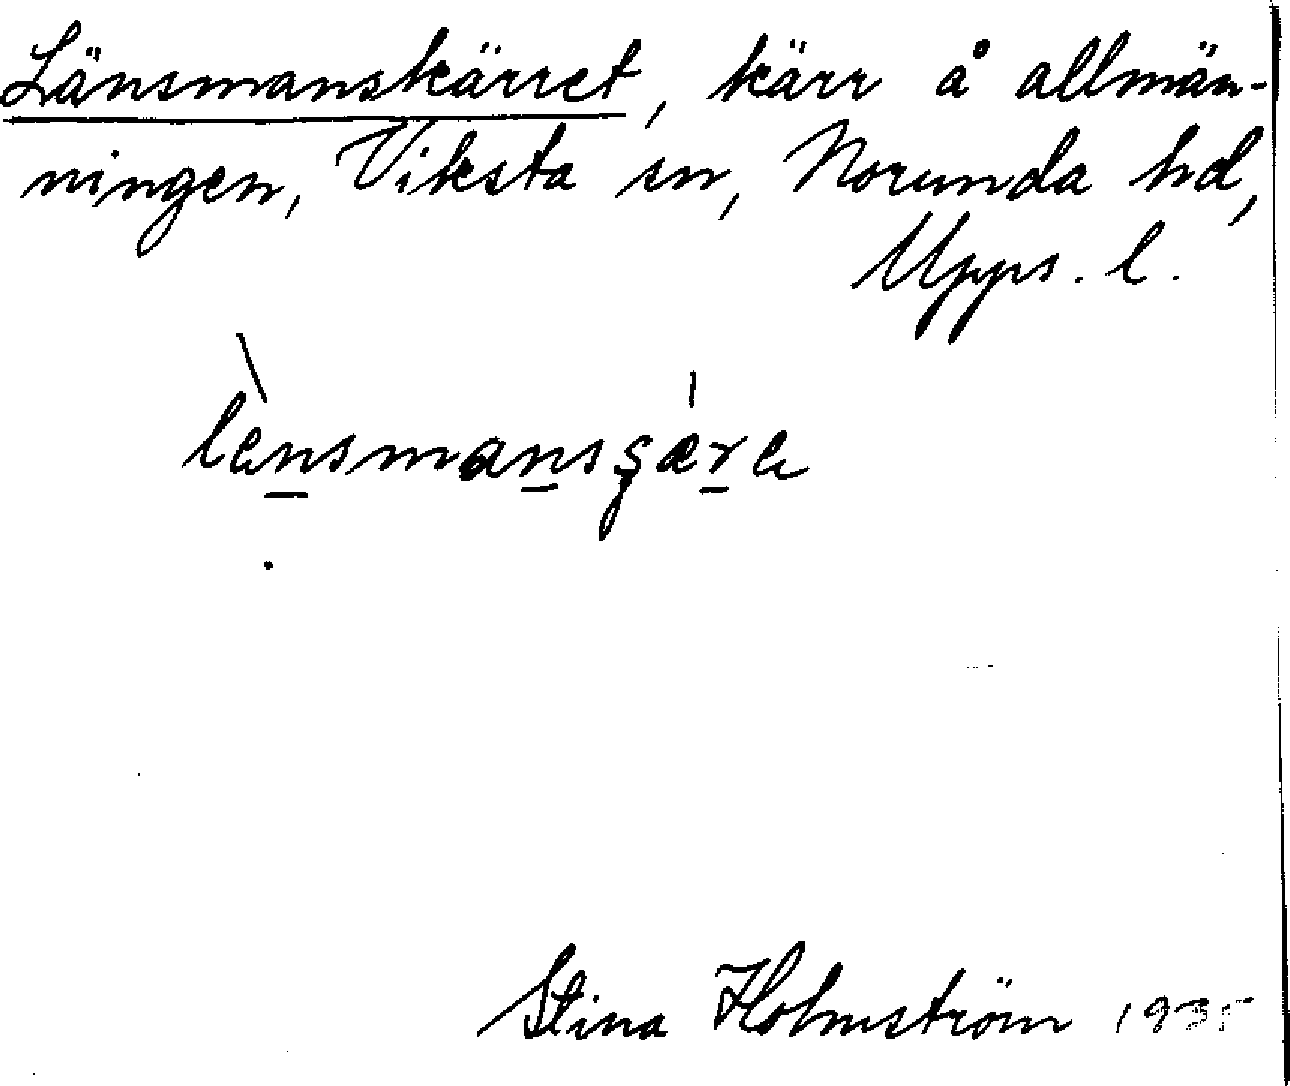 Länsmanskärret, kärr å allmän-
ningen, Viksta sn, Norunda hd,
Upps. l.
lensmansʂæra
Stina Holmström 1935